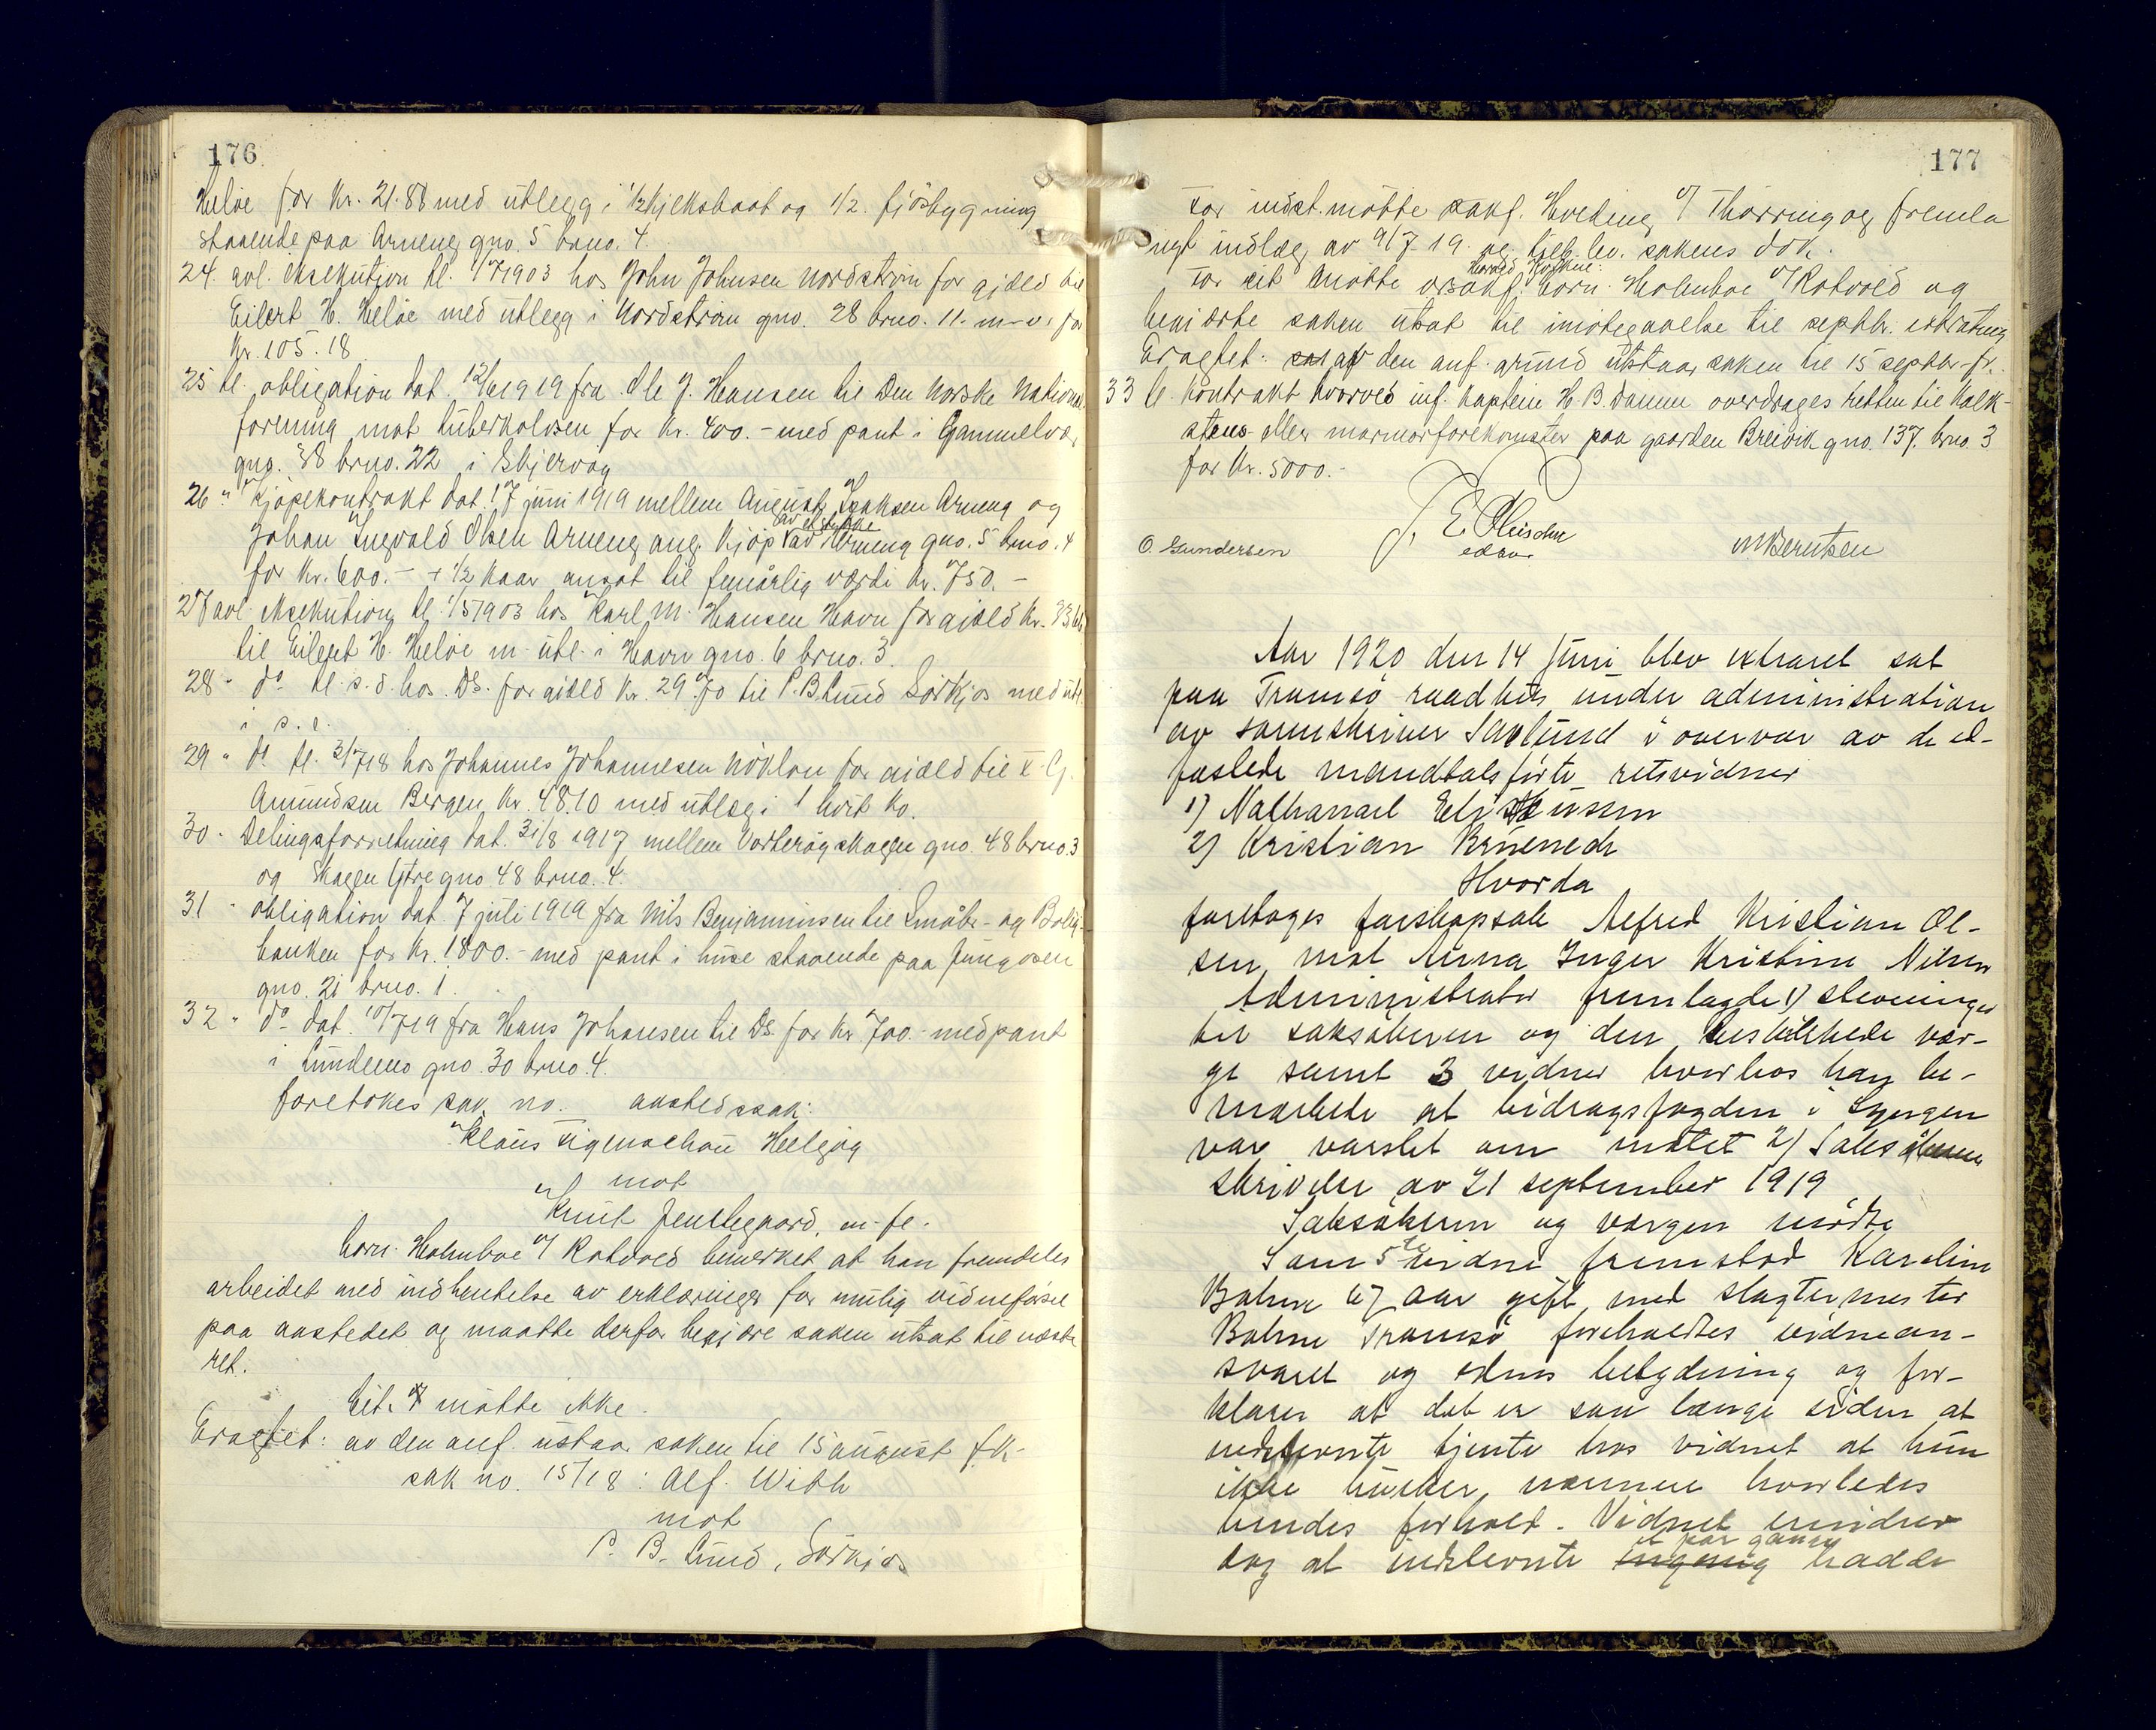 176
Heløe for Kr. 21.88 med utlegg i 1/2 kjeksbaat og 1/2 fjøsbygning
staaende paa Arneng gno. 5 brno. 4.
24. avl. eksekution tl. 1/7 1903 hos John Johnsen Nordstrøm for gjæld til
Eilert H. Heløe med utlegg i Nordstrøm gno. 28 brno. 11. m-v. for
Kr. 105.18
25 tl. obligation dat. 12/6 1919 fra Ole J. Hansen til Den Norske National
forening mot tuberkulosen for Kr. 400.- med pant i Gammelvær
gno. 38 brno. 22 i Skjervøy
26 " Kjøpekontrakt dat. 17 juni 1919 mellem August Isaksen Arneng og
Johan Ingvald Olsen Arneng ang. kjøp av et stykke av Arneng gno. 5 brno. 4
for Kr. 600.- + 1/2 kaar ansat til femårlig værdi Kr. 750.-
27 avl. eksekution tl. 1/5 1903 hos Karl M. Hansen Havn for gjæld Kr.
til Eilert H. Heløe m. utl. i Havn gno. 6 brno. 3.
28 " do tl. s. d. hos Ds. for gjæld Kr. 29.70 til P. B. Lund Sørkjos med utl.
i s. e.
29 " do tl. 3/7 18 hos Johannes Johannesen Nøklan for gjæld til
Amundsen Bergen Kr. 48.10 med utlæg i 1 hvit ko.
30 - Delingsforretning dat. 31/8 1917 mellem Vorterøyskagen gno. 48 brno. 3
og Skagen Ytre gno 48 brno. 4.
31 - obligation dat. 7 juli 1919 fra Nils Benjaminsen til Småbr- og Bolig-
banken for Kr. 1800.- med pant i huse staaende paa
gno. 21 brno. 1.
32 " do dat. 10/7 19 fra Hans Johansen til Ds. for Kr 700.- med pant
i Lundenes gno. 30 brno. 4.
foretokes sak no. aastedssak:
Klaus Figenschou Helgøy
mot
Knut Jensegaard, m-fl.
horr. Holmboe v/ Rotvold bemerket at han fremdeles
arbeidet med indhentelse av erklæringer for mulig vidneførsel
paa aastedet og maatte derfor begjære saken utsat til næste
ret.
Cit. møtte ikke.
Eragtet: av den anf. utstaar saken til 15 august f.k.
sak no. 15/18: Alf. With
mot
P. B. Lund, Sørkjos
177
For indst. møtte sakf. Hveding v/ Thorring og fremla
ngt indlæg av 9/7 19. og tilb. lev. sakens dok.
For cit møtte orsakf. Harald horr. Holmboe v/ Rotvold og
begjærte saken utsat til imøtegaaelse til septbr. extrating
Eragtet: av den anf. grund utstaar saken til 15 septbr. fk.
33 tl. kontrakt hvorved inf. Kaptein H. B. Damm overdrages retten til kalk-
stens- eller marmorforekomster paa gaarden Breivik gno. 137. brno. 3
for Kr. 5000.-
O Gundersen
edsvor
M Berntsen
Aar 1920 den 14 juni blev extraret sat
paa Tromsø raadhus under administration
av sorenskriver Søvlund i overvær av de ed-
fæstede mandtalsførte retsvidner
1) Nathanael
2) Kristian
Hvorda
foretoges farskapssak Alfred Kristian Ol-
sen mot Anna Inger Kristine Nilsen
Administrator fremlagde 1) stevninger
til saksøkeren og den beskikkede vær-
ge samt 3 vidner hvorhos han be-
merkede at bidragsfogden i Lyngen
var varslet om møtet 2) Saksøkerens
skrivelse av 21 september 1919
Saksøkeren og værgen mødte
Som 5te vidne fremstod Karoline
Bohne 67 aar gift med slagtermester
Bohne Tromsø foreholdtes vidnean-
svaret og edens betydning og for-
klarer at det er saa længe siden at
indstevnte tjente hos vidnet at hun
ikke husker nærmere hvorledes
hendes forhold. Vidnet erindrer
et par ganger
dog at indstevnte hadde